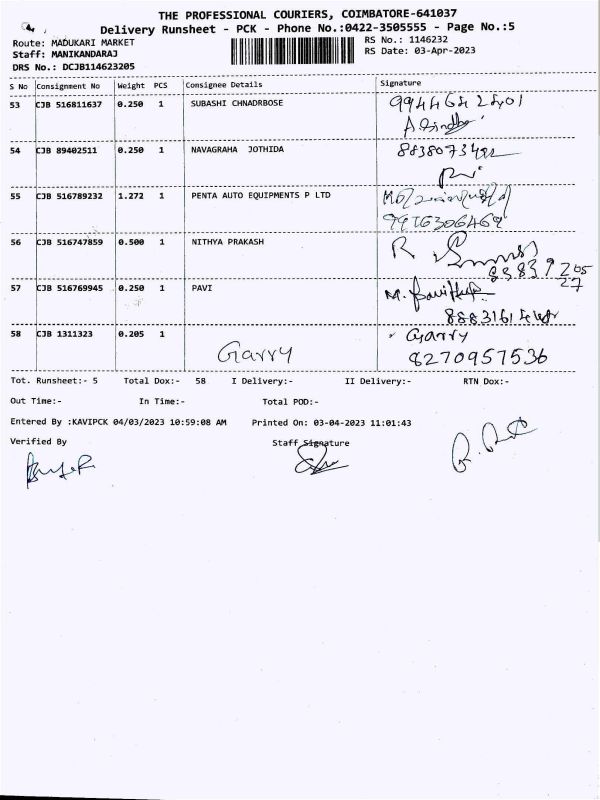 THE PROFESSIONAL COURIERS, COIMBATORE-641037
Delivery Runsheet - PCK - Phone No.:0422-3505555 - Page No.:5
Route: MADUKARI MARKET
RS No.: 1146232
Staff: MANIKANDARAJ
RS Date: 03-Apr-2023
DRS No.: DCJB114623205
S No Consignment No Weight PCS Consignee Details Signature
53 CJB 516811637 0.250 1 SUBASHI CHNADRBOSE
54 CJB 89402511 0.250 1 NAVAGRAHA JOTHIDA
55 CJB 516789232 1.272 1 PENTA AUTO EQUIPMENTS P LTD
9976306469
56 CJB 516747859 0.500 1 NITHYA PRAKASH R
57 CJB 516769945 0.250 1 PAVI
58 CJB 1311323 0.205 1 Garry
Garry 8270957536
Tot. Runsheet:- 5 Total Dox:- 58 I Delivery:- II Delivery:- RTN Dox:-
Out Time:- In Time:- Total POD:-
Entered By :KAVIPCK 04/03/2023 10:59:08 AM Printed On: 03-04-2023 11:01:43
Verified By Staff Signature